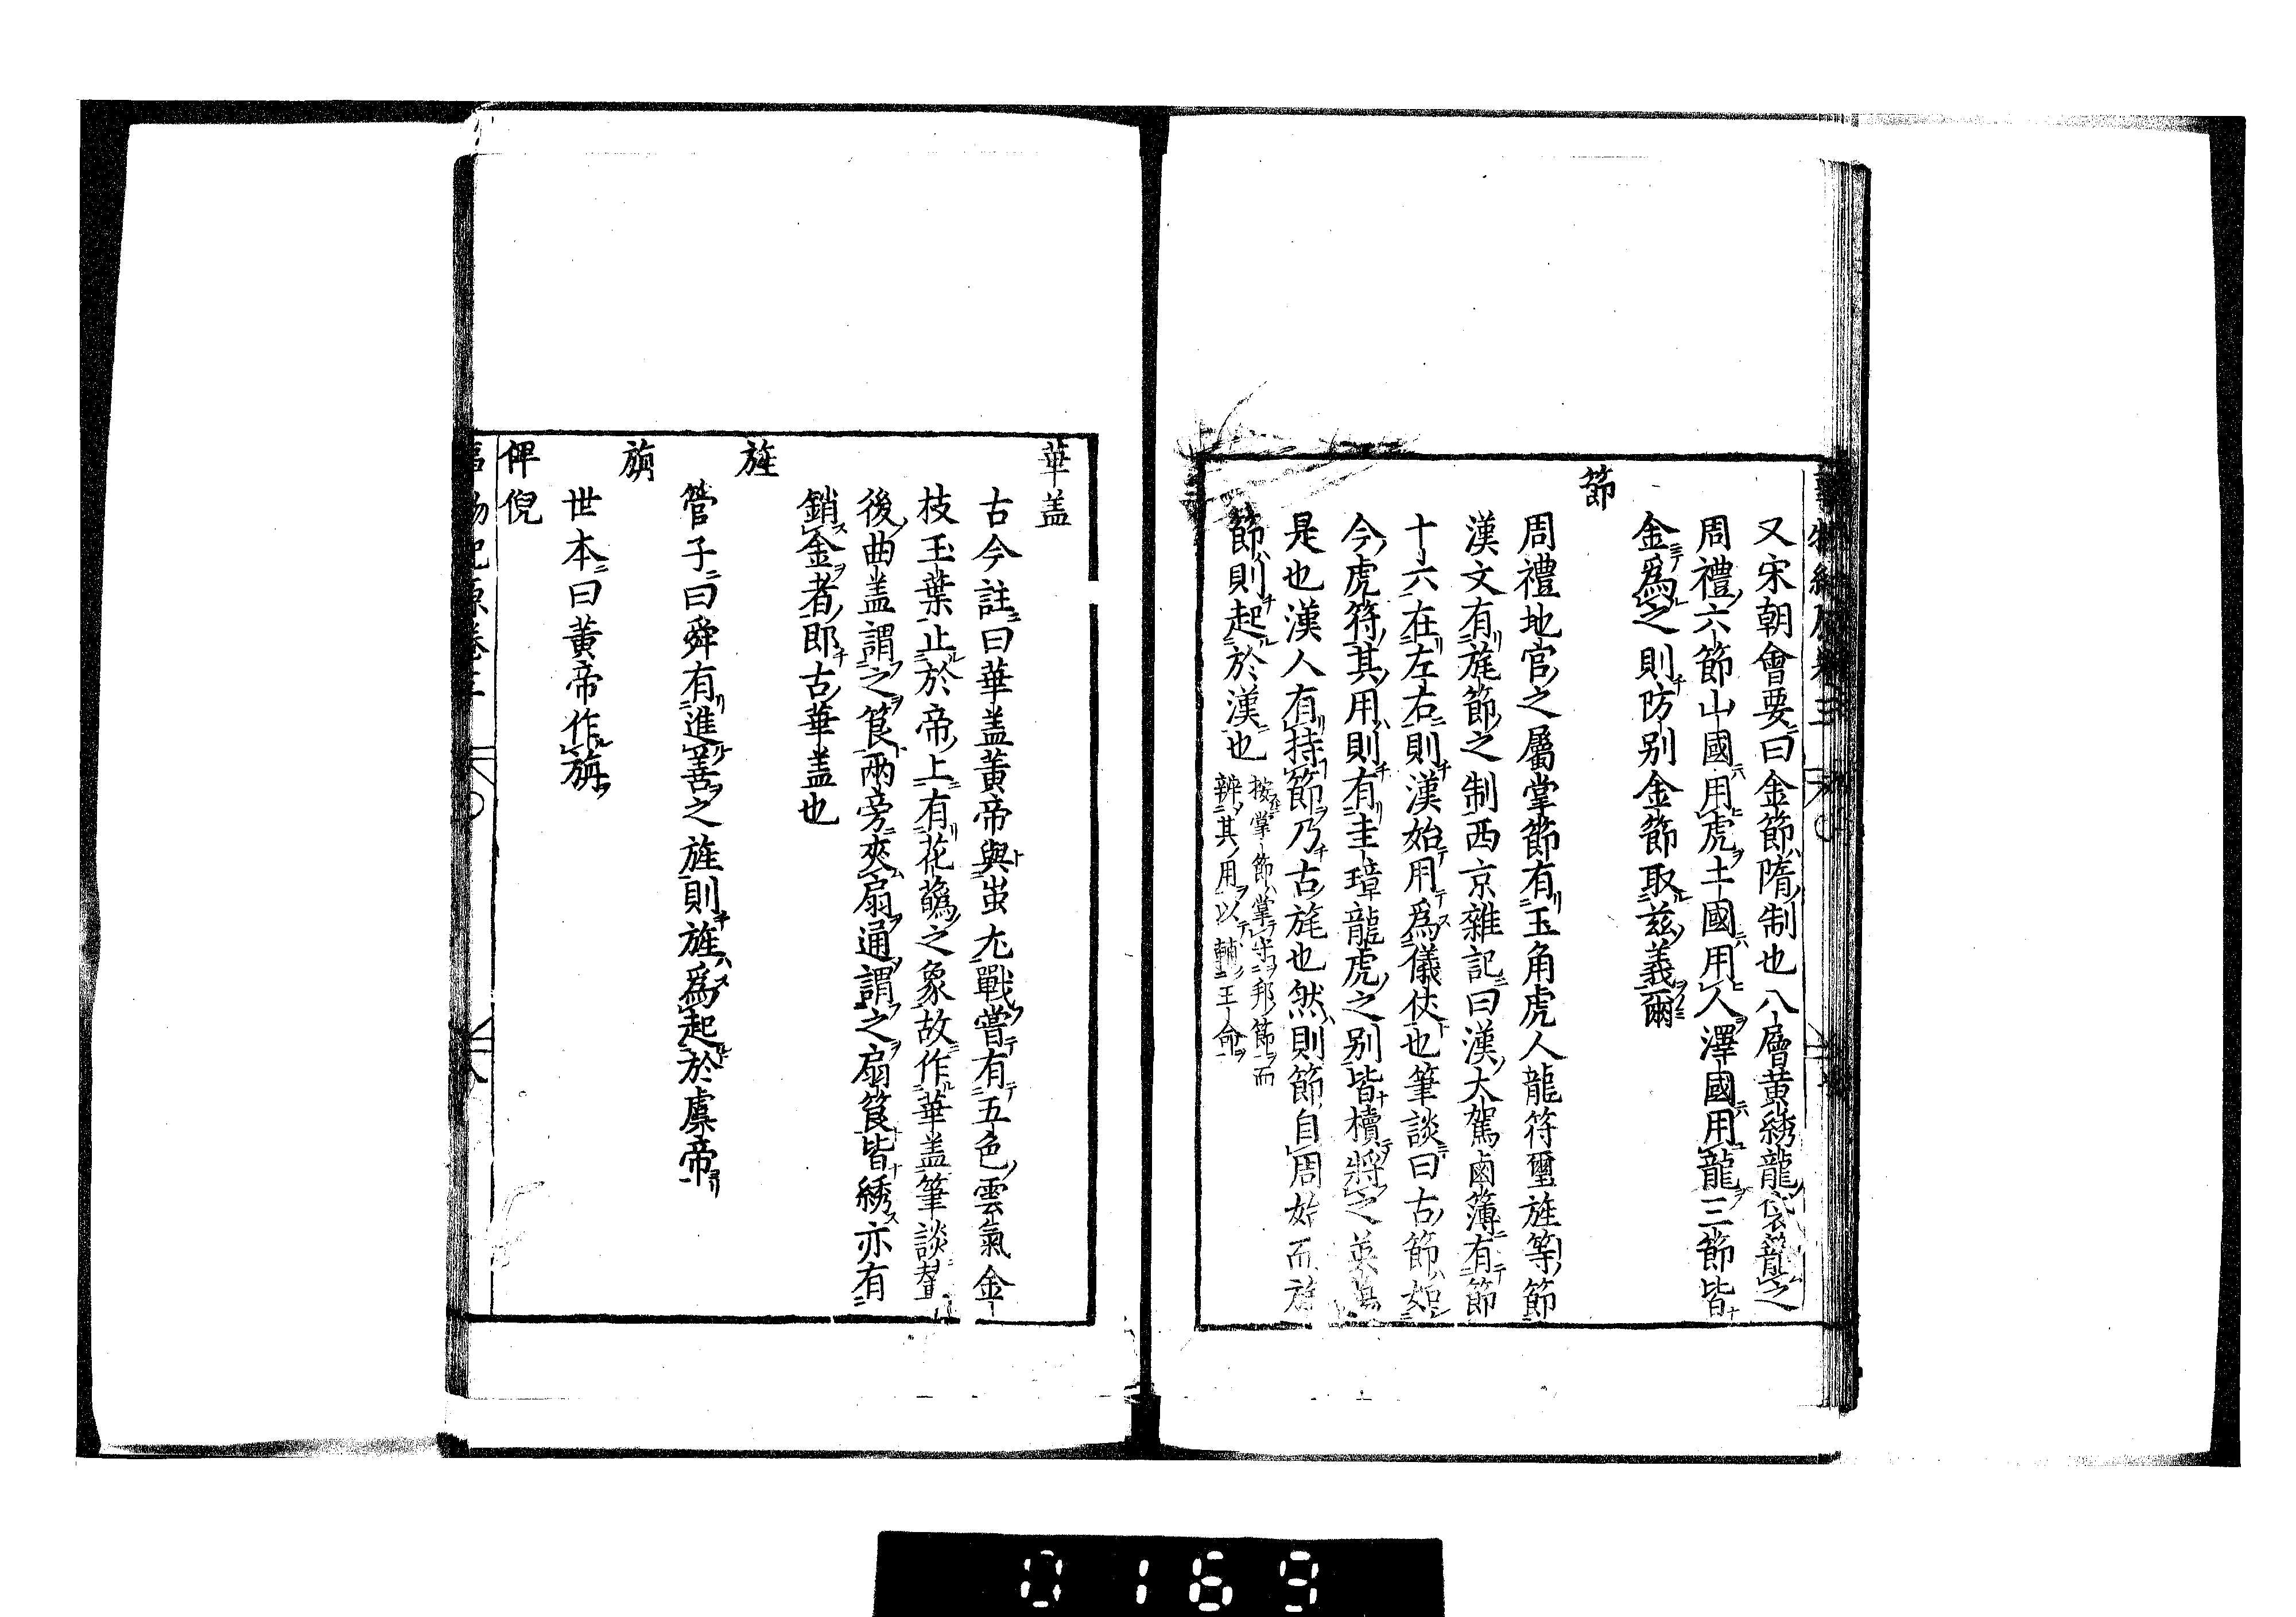 事物紀原卷三
又宋朝會要曰金節隋制也八層黄綉龍袋籠之
周禮六節山國用虎土國用人澤國用龍三節皆
金爲之則防别金節取兹義爾
節
周禮地官之屬掌節有玉角虎人龍符璽旌等節
漢文有旄節之制西京雜記曰漢大駕鹵簿有節
十六在左右則漢始用爲儀仗也筆談曰古節如
今虎符其用則有圭璋龍虎之别皆櫝將之英蕩
是也漢人有持節乃古旄也然則節自周始而旄
節則起於漢也
按掌節掌守邦節而
辨其用以輔王命
華盖
古今註曰華盖黄帝與蚩尤戰嘗有五色雲氣金
枝玉葉止於帝上有花蘤之象故作華盖筆談輦
後曲盖謂之筤兩旁夾扇通謂之扇筤皆綉亦有
銷金者即古華盖也
旌
管子曰舜有進善之旌則旌爲起於虞帝
旃
世本曰黄帝作旃
俾倪
事物紀原卷三
0169